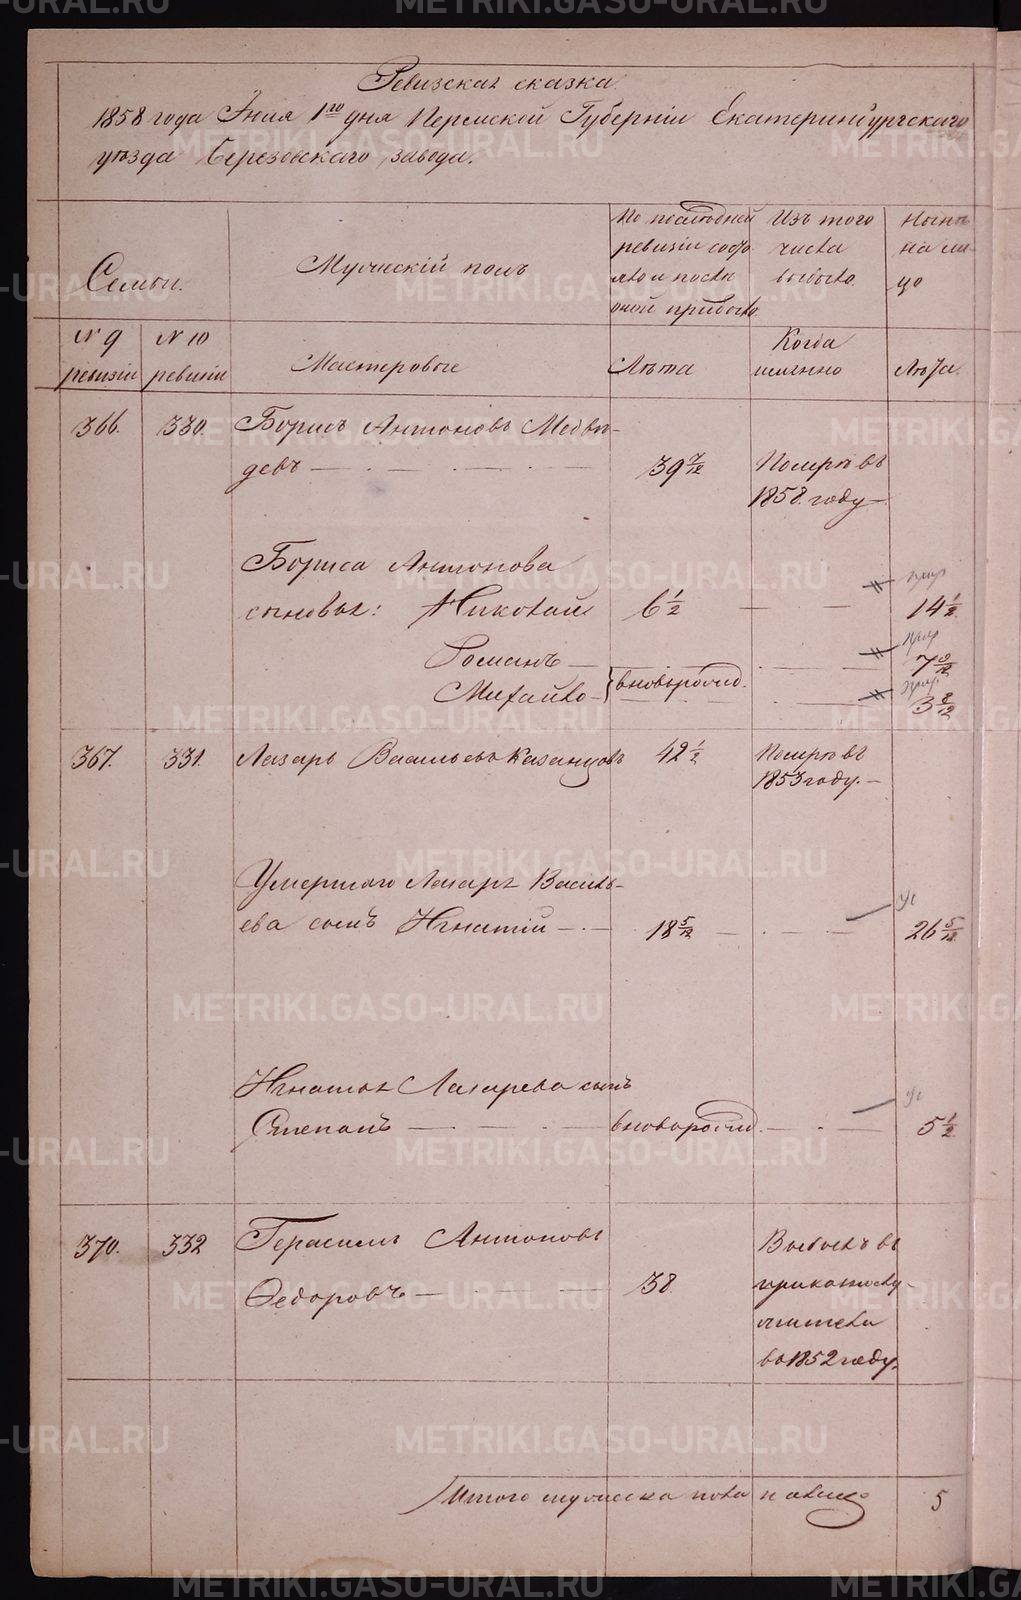 Ревизская сказка
1858 года Iюня 1го дня Пермской Губернiи Екатеринбургскаго
уѣзда Березовскаго завода.
Семьи.
Мужескiй полъ
По послѣдней
ревизiи состо
яло и послѣ
оной прибыло
Изъ того
числа
выбыло
Нынѣ
на ли-
цо
№ 9
ревизiи
№ 10
ревизiи
Мастеровые
Лѣта
Когда
именно
Лѣта.
366. 330. Борисъ Антоновъ Медвѣ-
девъ 39 7/12 Померъ въ
1858 году
Бориса Антонова
сыновья: Николай 6 1/2 14 1/2
Романъ 7 9/12
Михайло вноворожд. 3 2/12
367. 331. Лазарь Васильевъ Казанцовъ 42 1/2 Померъ въ
1853 году.
Умершаго Лазаря Василь-
ева сынъ Игнатiй 18 5/12 26 5/12
Игнатья Лазарева сынъ
Степанъ вноворожд. 5 1/2
370. 332 Герасимъ Антоновъ
Федоровъ 38. Выбылъ въ
во 1852 году.
Итого мужеска пола на лицо 5
METRIKI.GASO-URAL.RU